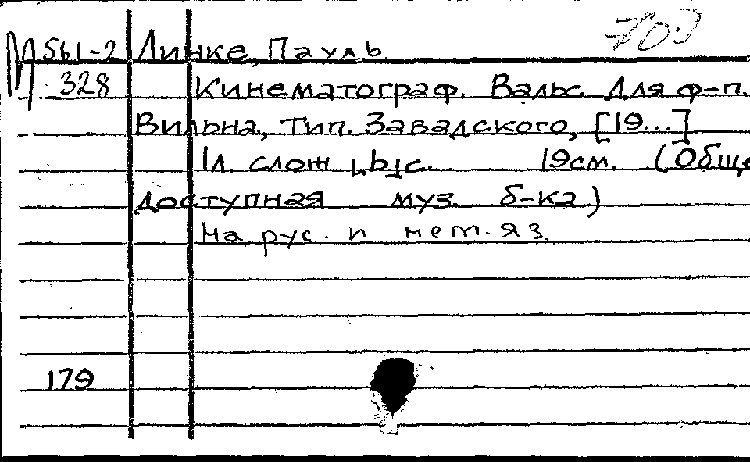 703
М 561-2 Линке, Пауль
328 Кинематограф. Вальс. Для ф-п.
Вильна, тип. Завадского, [19...]
1л. слож. 19см. (Обще
доступная муз. б-ка)
На рус. и нем. яз.
179